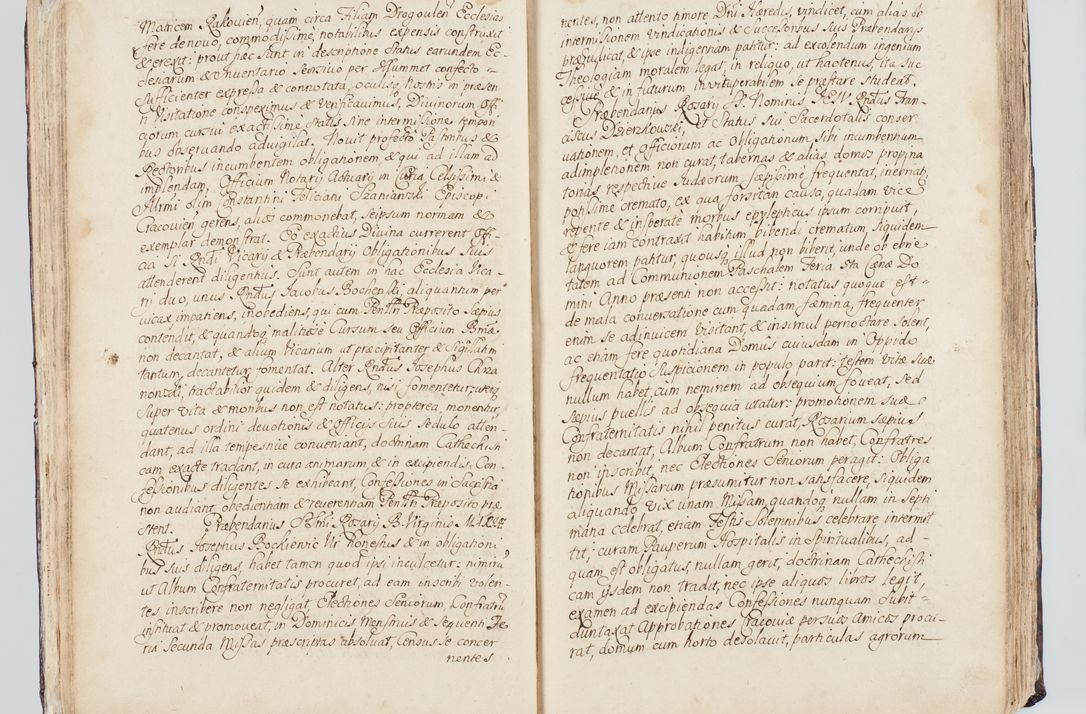 Matricem Rakovien, quam circa Filiam Drogoulen Ecclesias
fere denovo, commodissime, notabilibus expensis construxit
& erexit: prout hæc sunt in descriptione Status earundem Ec-
clesiarum & Inventario Sensivo per Assummet confecto -
sufficienter expressa & connotata, oculisq Nostris in præsen
ti Visitatione conspeximus & verificavimus, Divinorum Offi-
ciorum cursui exactissime Statis sine intermissione tempori
bus observando advigilat. Novit profecto Pastoribus &
Rectoribus incumbentem obligationem, & qui ad illam ad
implendam, Officium Notarij Actuarij in Curia Celsissimi &
Illrmi olim Constantini Feliciani Szaniawski Episcopi
Cracovien gerens, alios commonebat, seipsum normam &
exemplar demonstrat. Eo exactius Divina currerent Offi-
cia si Rndi Vicarij & Præbendarij Obligationibus suis
attenderent diligentius. Sunt autem in hac Ecclesia Vica-
rii duo, unus Rndus Jacobus Bochenski, aliquantum per
vicax impatiens, inobediens, qui cum Penstri Præposito sæpius
contendit, & quandoq malitiose Cursum seu Officium Bmæ
non decantat, & alium Vicarium ut præcipitanter & sigillatim
tantum, decantetur, fomentat. Alter Rndus Josephus Chrza
nonski, tractabilior quidem & diligens, nisi fomentetur: uterq
super vita & moribus non est notatus: propterea monentur,
quatenus ordini devotionis & officijs suis sedulo atten-
dant, ad illa tempestive conveniant, doctrinam Cathechisti
cam exacte tradant, in cura animarum & in excipiendis Con-
fessionibus diligentes se exhibeant, Confessiones in Sacristia
non audiant, obedientiam & reverentiam Penstri Præposito præ
stent. Præbendarius Primi Rosarij B. Virginis MARIÆ
Rndus Josephus Bockienic Vir honestus & in obligationi
bus suis diligens, habet tamen quod ipsi inculcetur: nimirum
ut Album Confraternitatis procuret, ad eam inscribi volen-
tes inscribere non negligat, Electiones Seniorum, Confratrum
instituat & promoveat, in Dominicis Menstruis & sequenti Fe-
ria secunda Missas præscriptas absolvat, Census se concer
nentes
nentes, non attento timore Dni Hæredis, vindicet, cum alias ob
intermissionem vindicationis & Successoribus suis Præbendarijs
præjudicat, & ipse indigentiam patitur: ad excolendum ingenium
Theologiam moralem legat, in reliquo, ut hactenus, ita suc
cessive & in futurum irrvituperabilem se præstare studeat.
Præbendarius Rosary SS. Nominis JESV Rndus Fran-
ciscus Dzierzkowski, ut Status sui Sacerdotalis conser
vationem, et officiorum ac Obligationum sibi incumbentium
adimpletionem non curat, tabernas & alias domos propina
torias, respective Judæorum sæpissime frequentat, inebriat,
potissime cremato, ex qua forsitan causa, quadam vice
repente & insperate morbus epylepticus ipsum corripuit,
& fere iam contraxit habitum bibendi crematum, siquidem
languorem patitur, quousq illud non biberit, unde ob ebrie
tatem ad Communionem Paschalem Feria 5ta Cænæ Do
mini Anno præsenti non accessit: notatus quoque est -
de mala conversatione cum quadam fæmina, frequenter
enim se adinvicem visitant, & insimul pernoctare solent,
ac etiam fere quotidiana Domus cuiusdam in Oppido
frequentatio suspicionem in populo parit: testem vitæ suæ
nullum habet, cum neminem ad obsequium foveat, sed
sæpius puellis ad obsequia utatur: promotionem suæ
Confraternitatis nihil penitus curat, Rosarium sæpius
non decantat, Album Confratrum non habet, Confratres
non inscribit, nec Electiones Seniorum peragit: Obliga
tionibus Missarum præsumitur non satisfacere, siquidem
aliquando vix unam Missam, quandoq nullam in septi
mana celebrat, etiam Festis Solemnibus celebrare intermit
tit; curam Pauperum Hospitalis in Spiritualibus, ad -
quam est obligatus, nullam gerit, doctrinam Cathechisti
cam ijsdem non tradit, nec ipse aliquos libros legit,
examen ad excipiendas Confessiones nunquam subit -
duntaxat Approbationes Cracoviæ per suos Amicos procu-
rat, domum cum horto desolavit, particulas agrorum